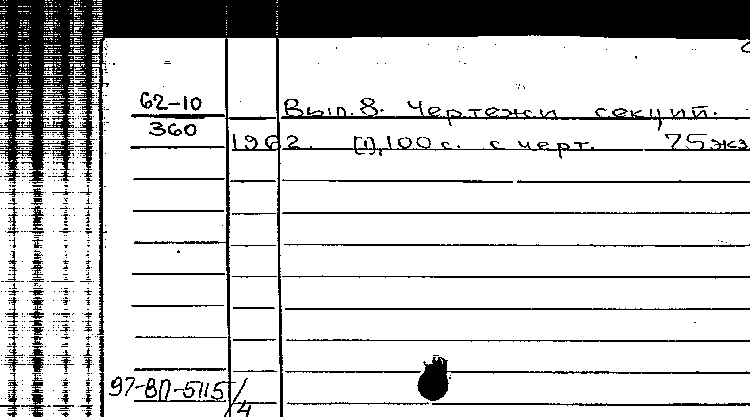 62-10 Вып. 8. Чертежи секций.
360
1962. [1], 100 с. с черт. 75 экз
97-ВП-5115/4